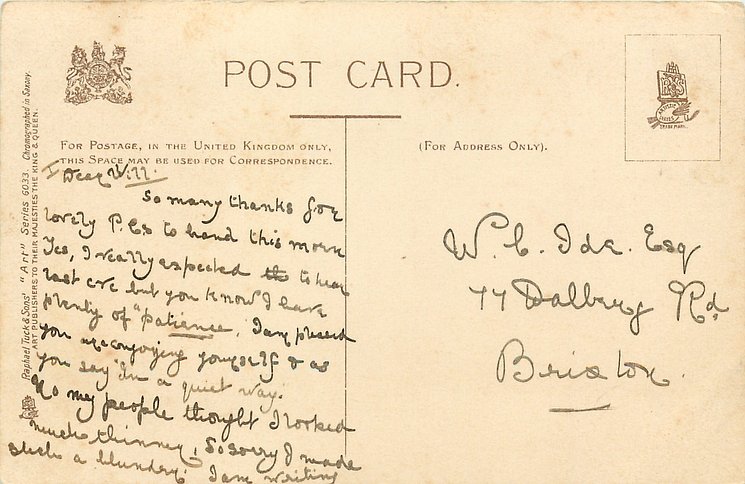 POST CARD.
FOR POSTAGE, IN THE UNITED KINGDOM ONLY,
THIS SPACE MAY BE USED FOR CORRESPONDENCE.
(FOR ADDRESS ONLY).
Raphael Tuck & Sons' "Art" Series 6033. Chromographed in Saxony.
ART PUBLISHERS TO THEIR MAJESTIES THE KING & QUEEN.
ARTISTIC SERIES
TRADE MARK.
Dear Will.
So many thanks for
lovely P.Cs to hand this morn
Yes, I really expected to hear
last eve but you know I have
plenty of "patience, I am pleased
you are enjoying yourself & as
you say "In a quiet way.
No my people thought I looked
much thinner, So sorry I made
such a blunder. I am writing
W. C. Ide. Esq
77 Dalberg Rd.
Brixton.